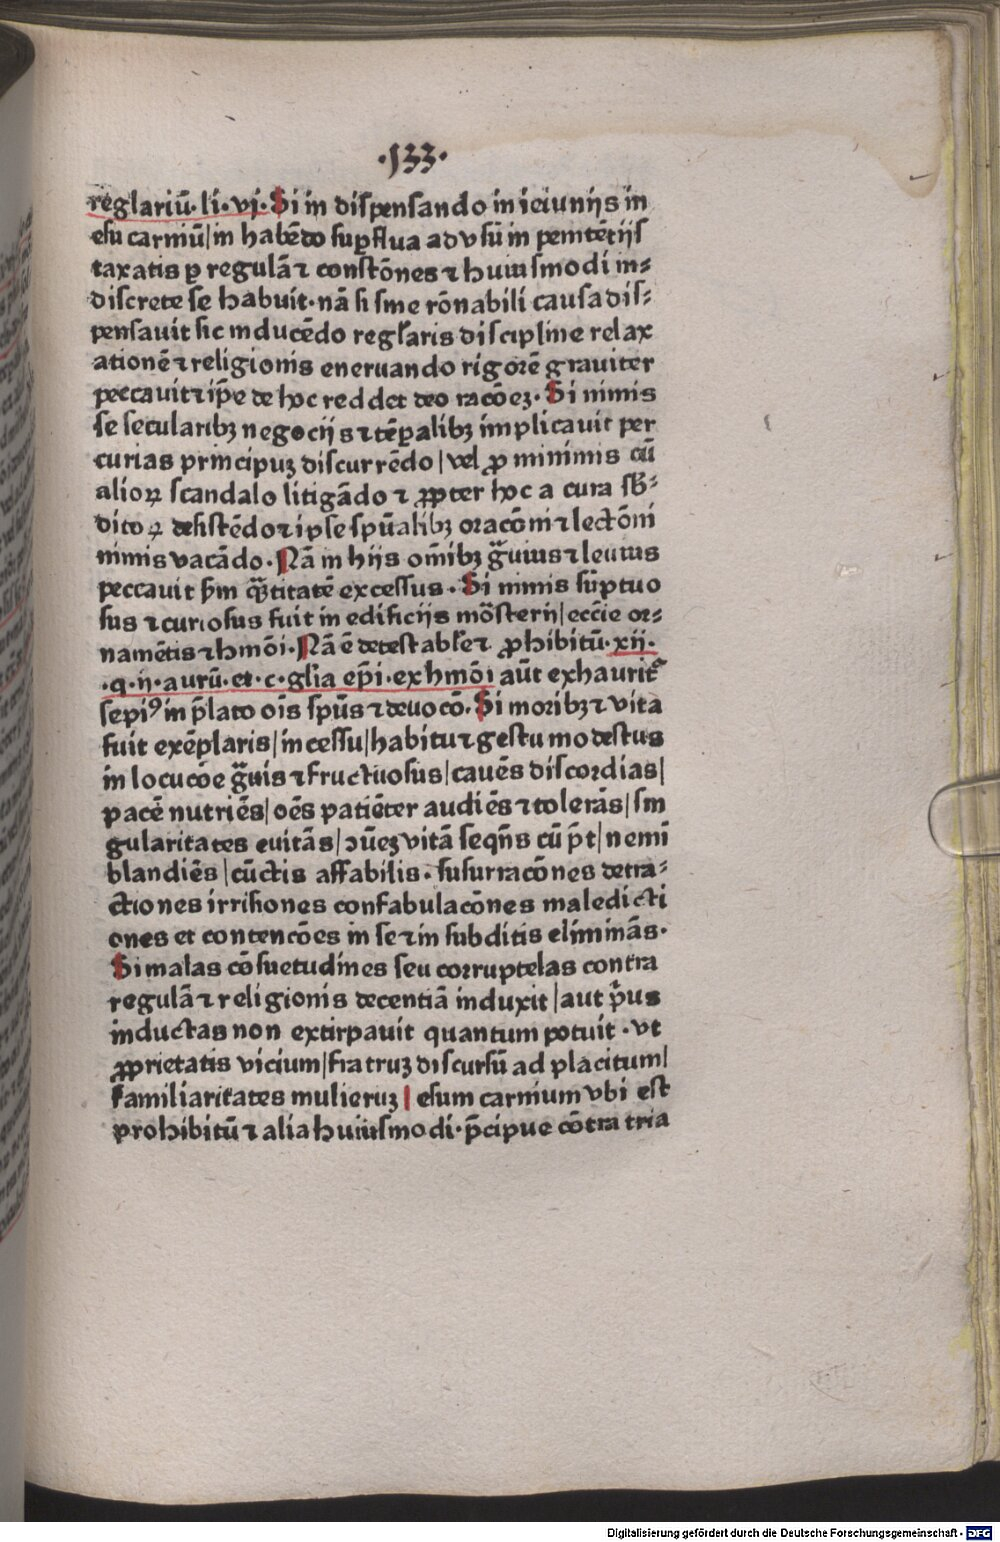 ·133·
reglariū·li·vj·Si in dispensando in ieiunijs in
esu carniū|in habēdo suꝑflua ad vsū in penitētijs
taxatis ꝑ regulā ⁊ constōnes ⁊ huiusmodi in⸗
discrete se habuit·nā si sine rōnabili causa dis⸗
pensauit sic inducēdo regl'aris discipline relax
ationē ⁊ religionis eneruando rigorē grauiter
peccauit ⁊ ip̄e de hoc reddet deo racōeꝫ·Si nimis
se secularibꝫ negocijs ⁊ tēꝑalibꝫ implicauit per
curias principuꝫ discurrēdo|vel ꝓ minimis cū
alioꝝ scandalo litigādo ⁊ ꝓpter hoc a cura sb̄⸗
ditoꝝ desistēdo ⁊ ipse spūalibꝫ oracōni ⁊ lectōni
nimis vacādo·Nā in hijs om̄ibꝫ gͣuius ⁊ leuius
peccauit ẜm qͣ̄titatē excessus·Si nimis sūptuo
sus ⁊ curiosus fuit in edificijs mōsterij|eccīe or⸗
namētis ⁊ hmōi·Nā ē detestabl'e ⁊ ꝓhibitū·xij·
·q·ij·aurū·et·c·gl'ia ep̄i·ex hmōi aūt exhauritͬ
sepiꝰ in p̄lato oīs spūs ⁊ deuocō·Si moribꝫ ⁊ vita
fuit exēplaris|incessu|habitu ⁊ gestu modestus
in locucōe gͣuis ⁊ fructuosus|cauēs discordias|
pacē nutriēs|oēs patiēter audiēs ⁊ tolerās|sin
gularitates euitās|ↄūeꝫ vitā seqn̄s cū p̄t|nemī
blandiēs|cūctis affabilis·susurracōnes detra⸗
ctiones irrisiones confabulacōnes maledicti
ones et contencōes in se ⁊ in subditis eliminās·
Si malas cōsuetudines seu corruptelas contra
regulā ⁊ religionis decentiā induxit|aut pͥus
inductas non extirpauit quantum potuit·vt
ꝓprietatis vicium|fratruꝫ discursū ad placitum|
familiaritates mulieruꝫ|esum carnium vbi est
prohibitū ⁊ alia huiusmodi·p̄cipue cōtra tria
Digitalisierung gefördert durch die Deutsche Forschungsgemeinschaft - DFG